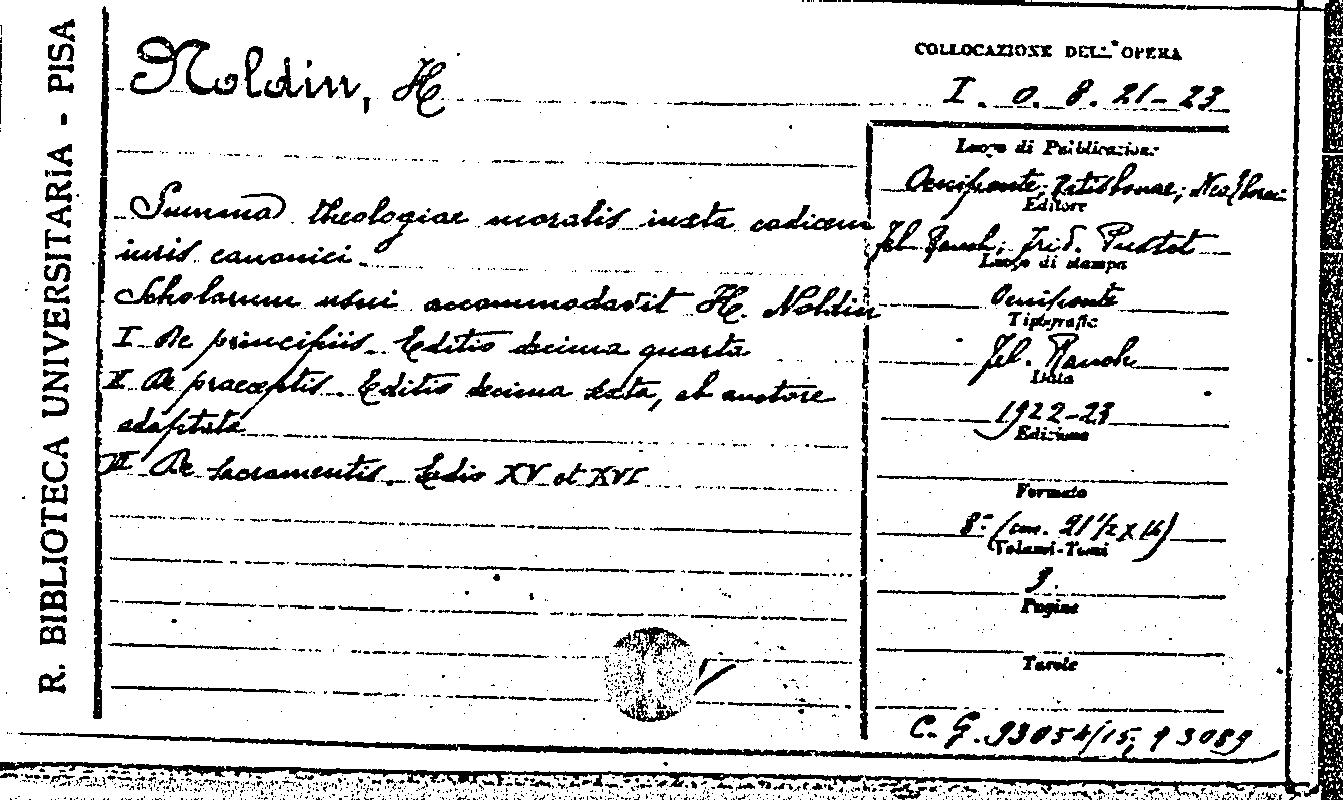 R. BIBLIOTECA UNIVERSITARIA - PISA
Noldin, H
COLLOCAZIONE DELL'OPERA
I. 0. 8. 21-23
Summa theologiae moralis iuxta codicem
iuris canonici
Scholarum usui accommodavit H. Noldin
I De principiis. Editio decima quarta
II De praeceptis. Editio decima sexta, ab auctore
adaptata
III De Sacramentis. Editio XV et XVI
Luogo di Pubblicazione
Oeniponte; Ratisbonae; Neo
Editore
Fel. Rauch; Frid. Pustet
Luogo di stampa
Oeniponte
Tipografia
Fel. Rauch
Data
1922-23
Edizione
Formato
8° (cm. 21 1/2 x 14)
Volumi-Tomi
3.
Pagine
Tavole
C. G. 93054/15, 93089